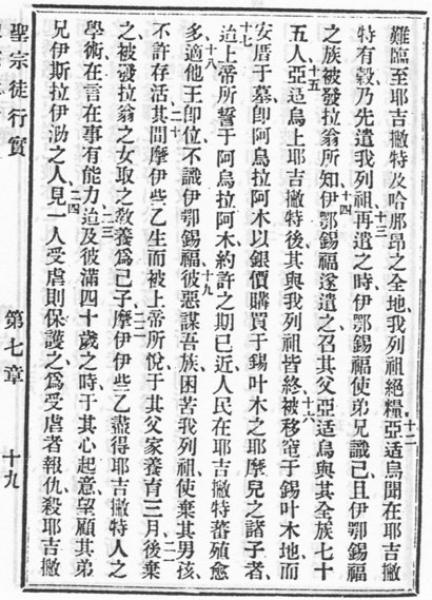 難臨至耶吉撇特及哈那昂之全地、我列祖絕糧、十二亞适烏聞在耶吉撇
特有穀、乃先遣我列祖、十三再遣之時、伊鄂錫福使弟兄識己、且伊鄂錫福
之族被發拉翁所知、十四伊鄂錫福遂遣之召其父亞适烏與其全族七十
五人、十五亞适烏上耶吉撇特後其與我列祖皆終、十六被移窀于錫叶木地、而
安厝于墓、卽阿烏拉阿木以銀價購買于錫叶木之耶摩兒之諸子者、
十七迨上帝所誓于阿烏拉阿木約許之期已近、人民在耶吉撇特蕃殖愈
多、十八適他王卽位、不識伊鄂錫福、十九彼惡謀吾族、困苦我列祖、使棄其男孩、
不許存活、二十其間摩伊些乙生而被上帝所悅于其父家養育三月、二一後棄
之、被發拉翁之女取之、敎養爲己子、二二摩伊伊些乙盡得耶吉撇特人之
學術、在言在事有能力、二三迨及彼滿四十歲之時、于其心起意望顧其弟
兄伊斯拉伊泐之人、二四見一人受虐、則保護之、爲受虐者報仇、殺耶吉撇
聖宗徒行實 第七章 十九